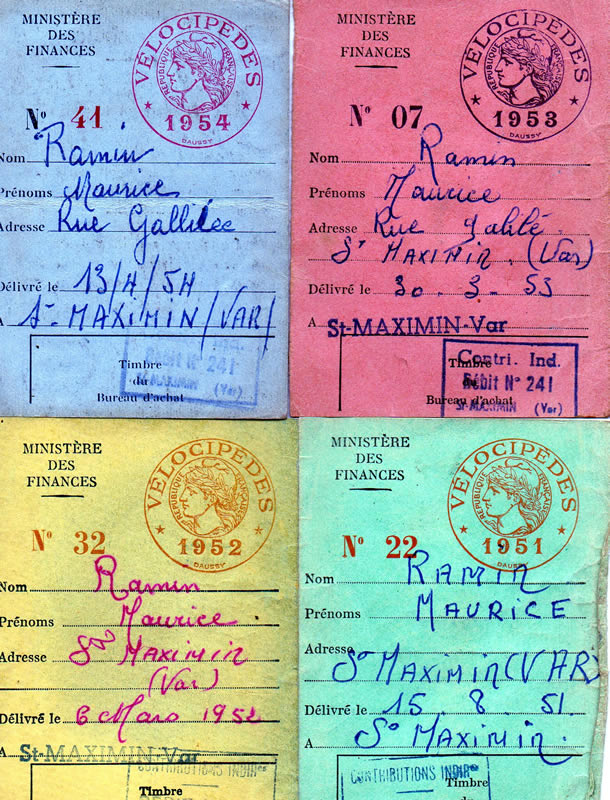 MINISTÈRE
DES
FINANCES
VÉLOCIPÈDES
RÉPUBLIQUE FRANÇAISE
1954
DAUSSY
N° 41
Nom Ramin
Prénoms Maurice
Adresse Rue Gallilée
Délivré le 13/4/54
A St-MAXIMIN (VAR)
Timbre
du
Bureau d'achat
Ind.
Débit N° 241
St-MAXIMIN (Var)
MINISTÈRE
DES
FINANCES
VÉLOCIPÈDES
RÉPUBLIQUE FRANÇAISE
1953
DAUSSY
N° 07
Nom Ramin
Prénoms Maurice
Adresse Rue Galilé
St MAXIMIN (Var)
Délivré le 30.3.53
A St-MAXIMIN-Var
Timbre
du
Bureau d'achat
Contri. Ind.
Débit N° 241
St-MAXIMIN (Var)
MINISTÈRE
DES
FINANCES
VÉLOCIPÈDES
RÉPUBLIQUE FRANÇAISE
1952
DAUSSY
N° 32
Nom Ramin
Prénoms Maurice
Adresse St MAXIMIN
(Var)
Délivré le 6 Mars 1952
A St-MAXIMIN-Var
CONTRIBUTIONS INDIR
Timbre
MINISTÈRE
DES
FINANCES
VÉLOCIPÈDES
RÉPUBLIQUE FRANÇAISE
1951
DAUSSY
N° 22
Nom RAMIN
Prénoms MAURICE
Adresse
St MAXIMIN (VAR)
Délivré le 15.8.51.
A St MAXIMIN.
CONTRIBUTIONS INDIR
Timbre